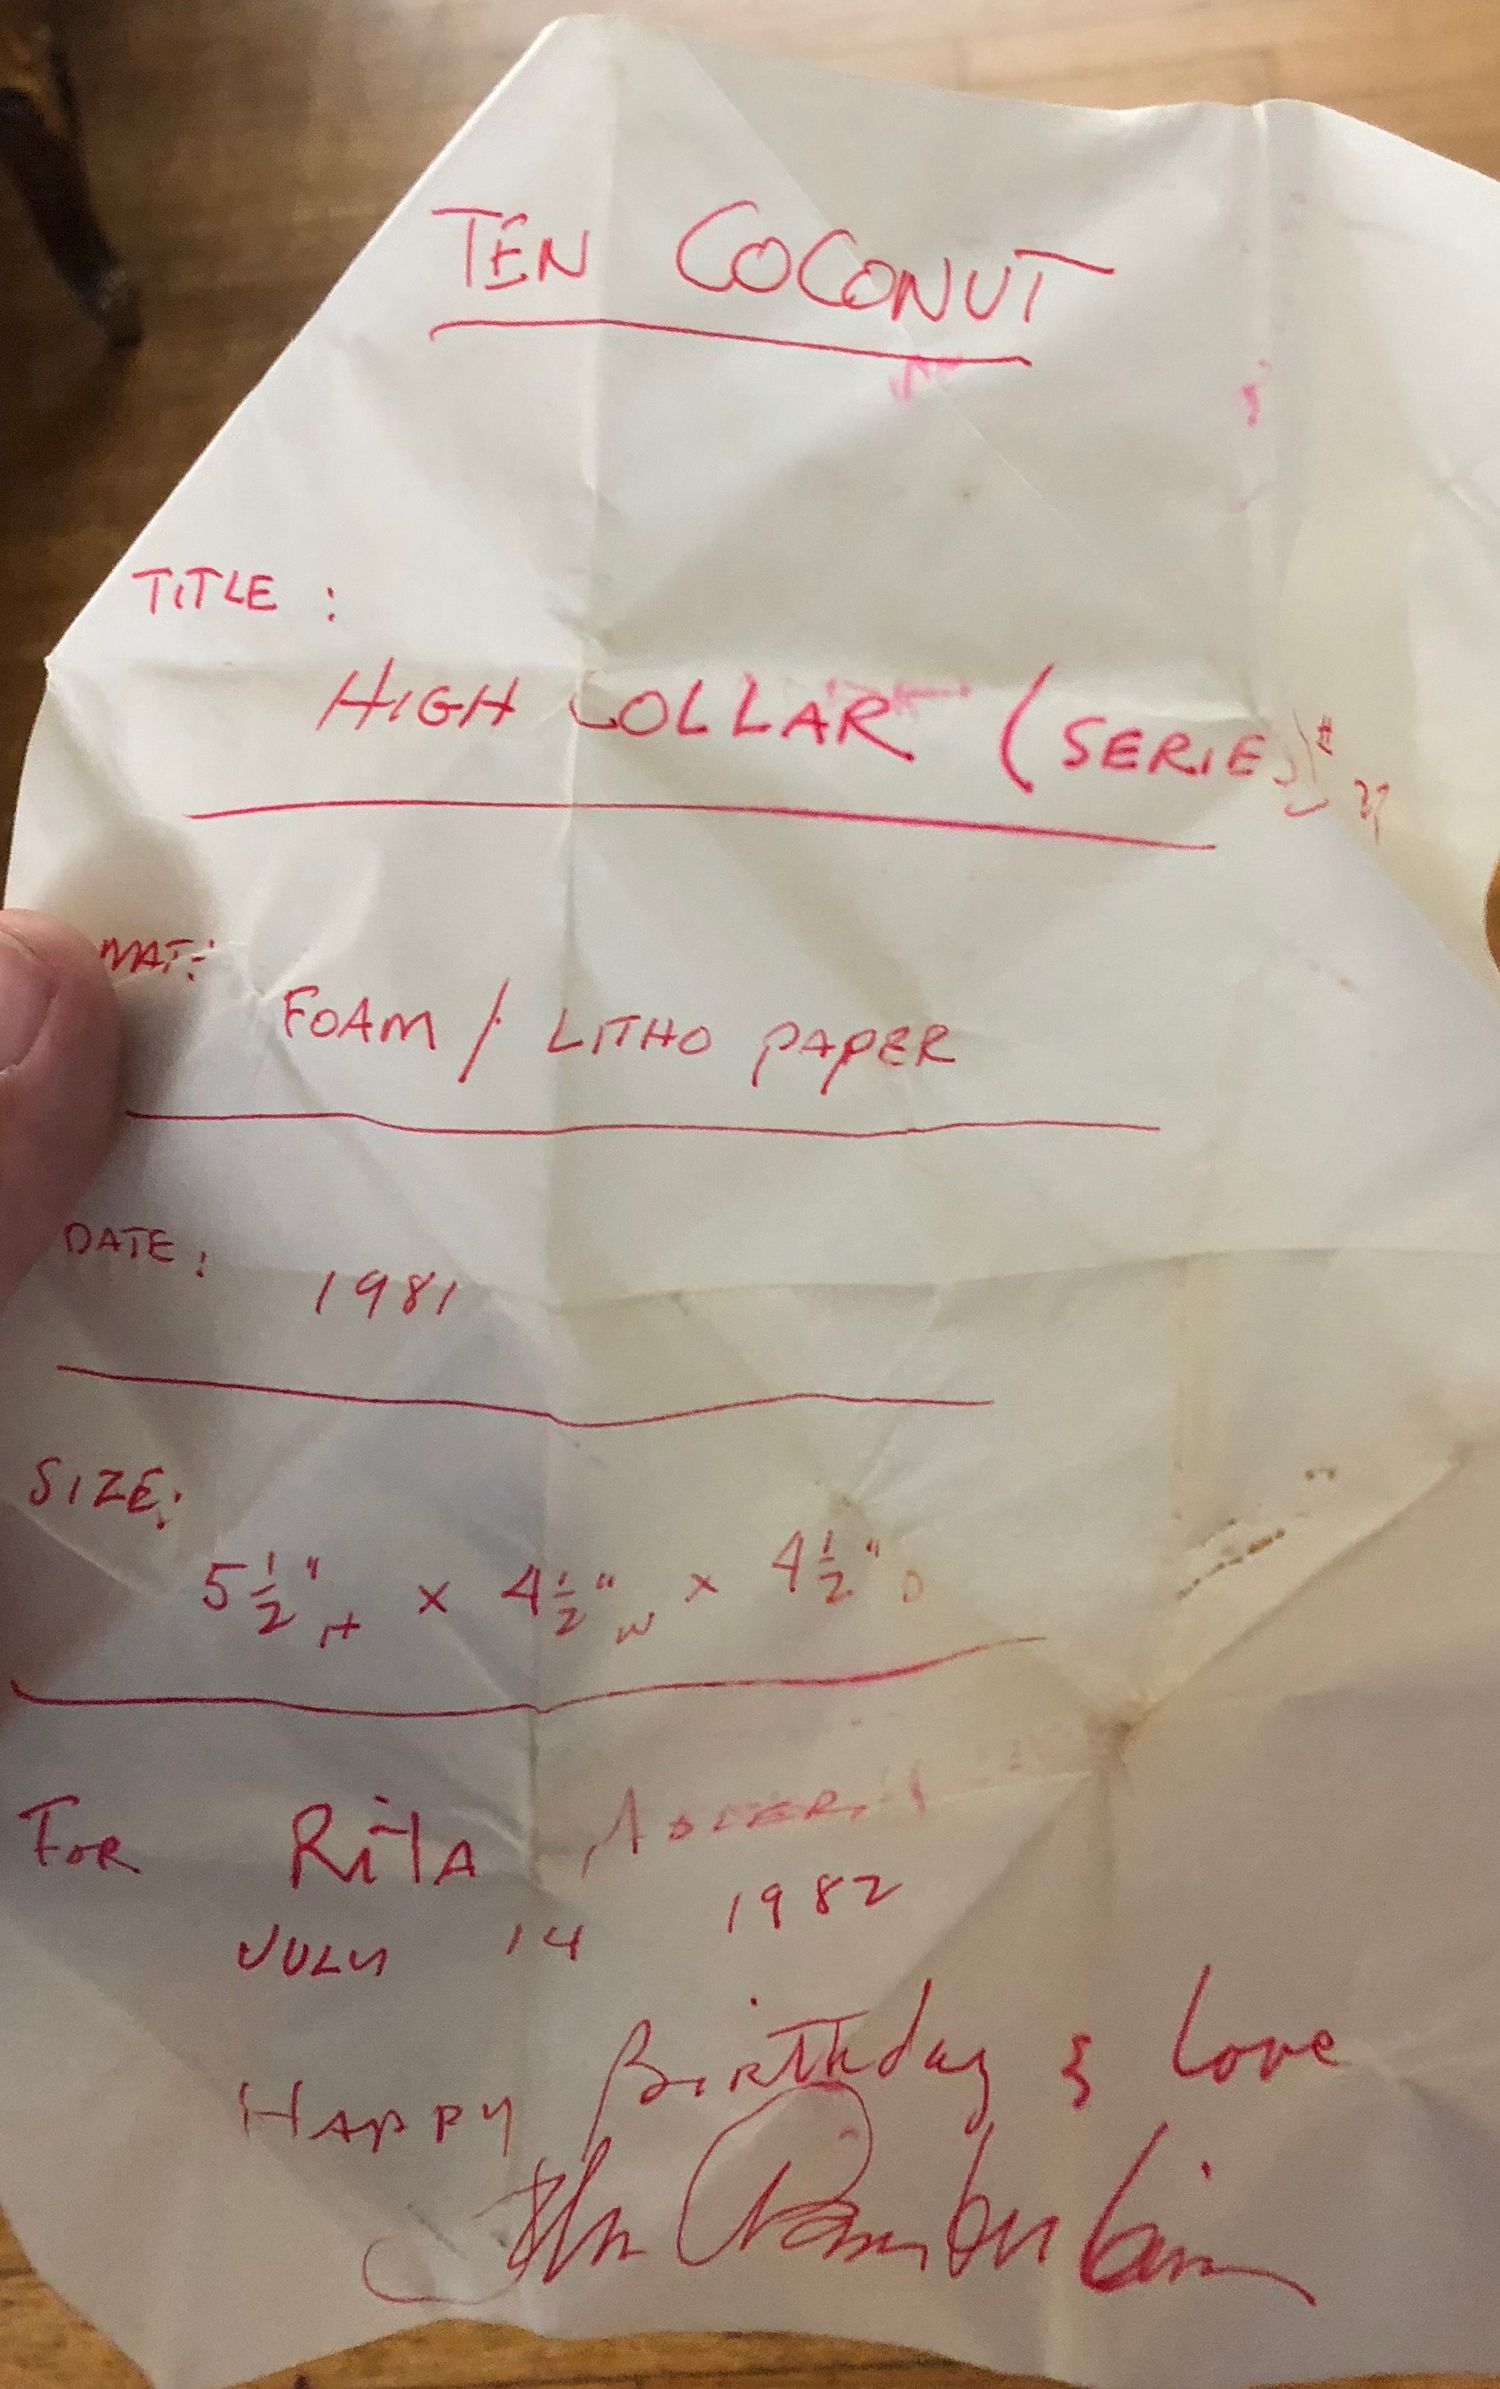 TEN COCONUT
TITLE :
HIGH COLLAR (SERIES) #
MAT:
FOAM / LITHO PAPER
DATE :
1981
SIZE:
5 1/2" H x 4 1/2" W x 4 1/2" D
FOR RITA
JULY 14 1982
HAPPY BIRTHday & love
John Chamberlain